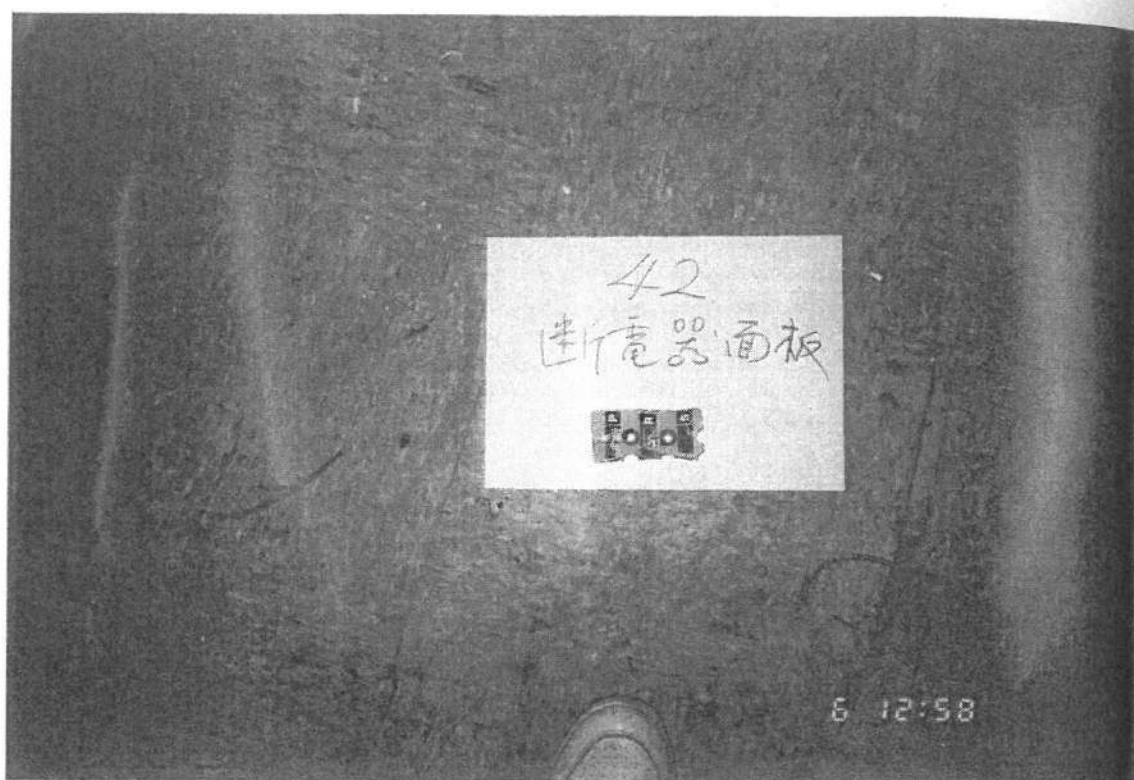 42
断電器面板
P R S
6 12:58